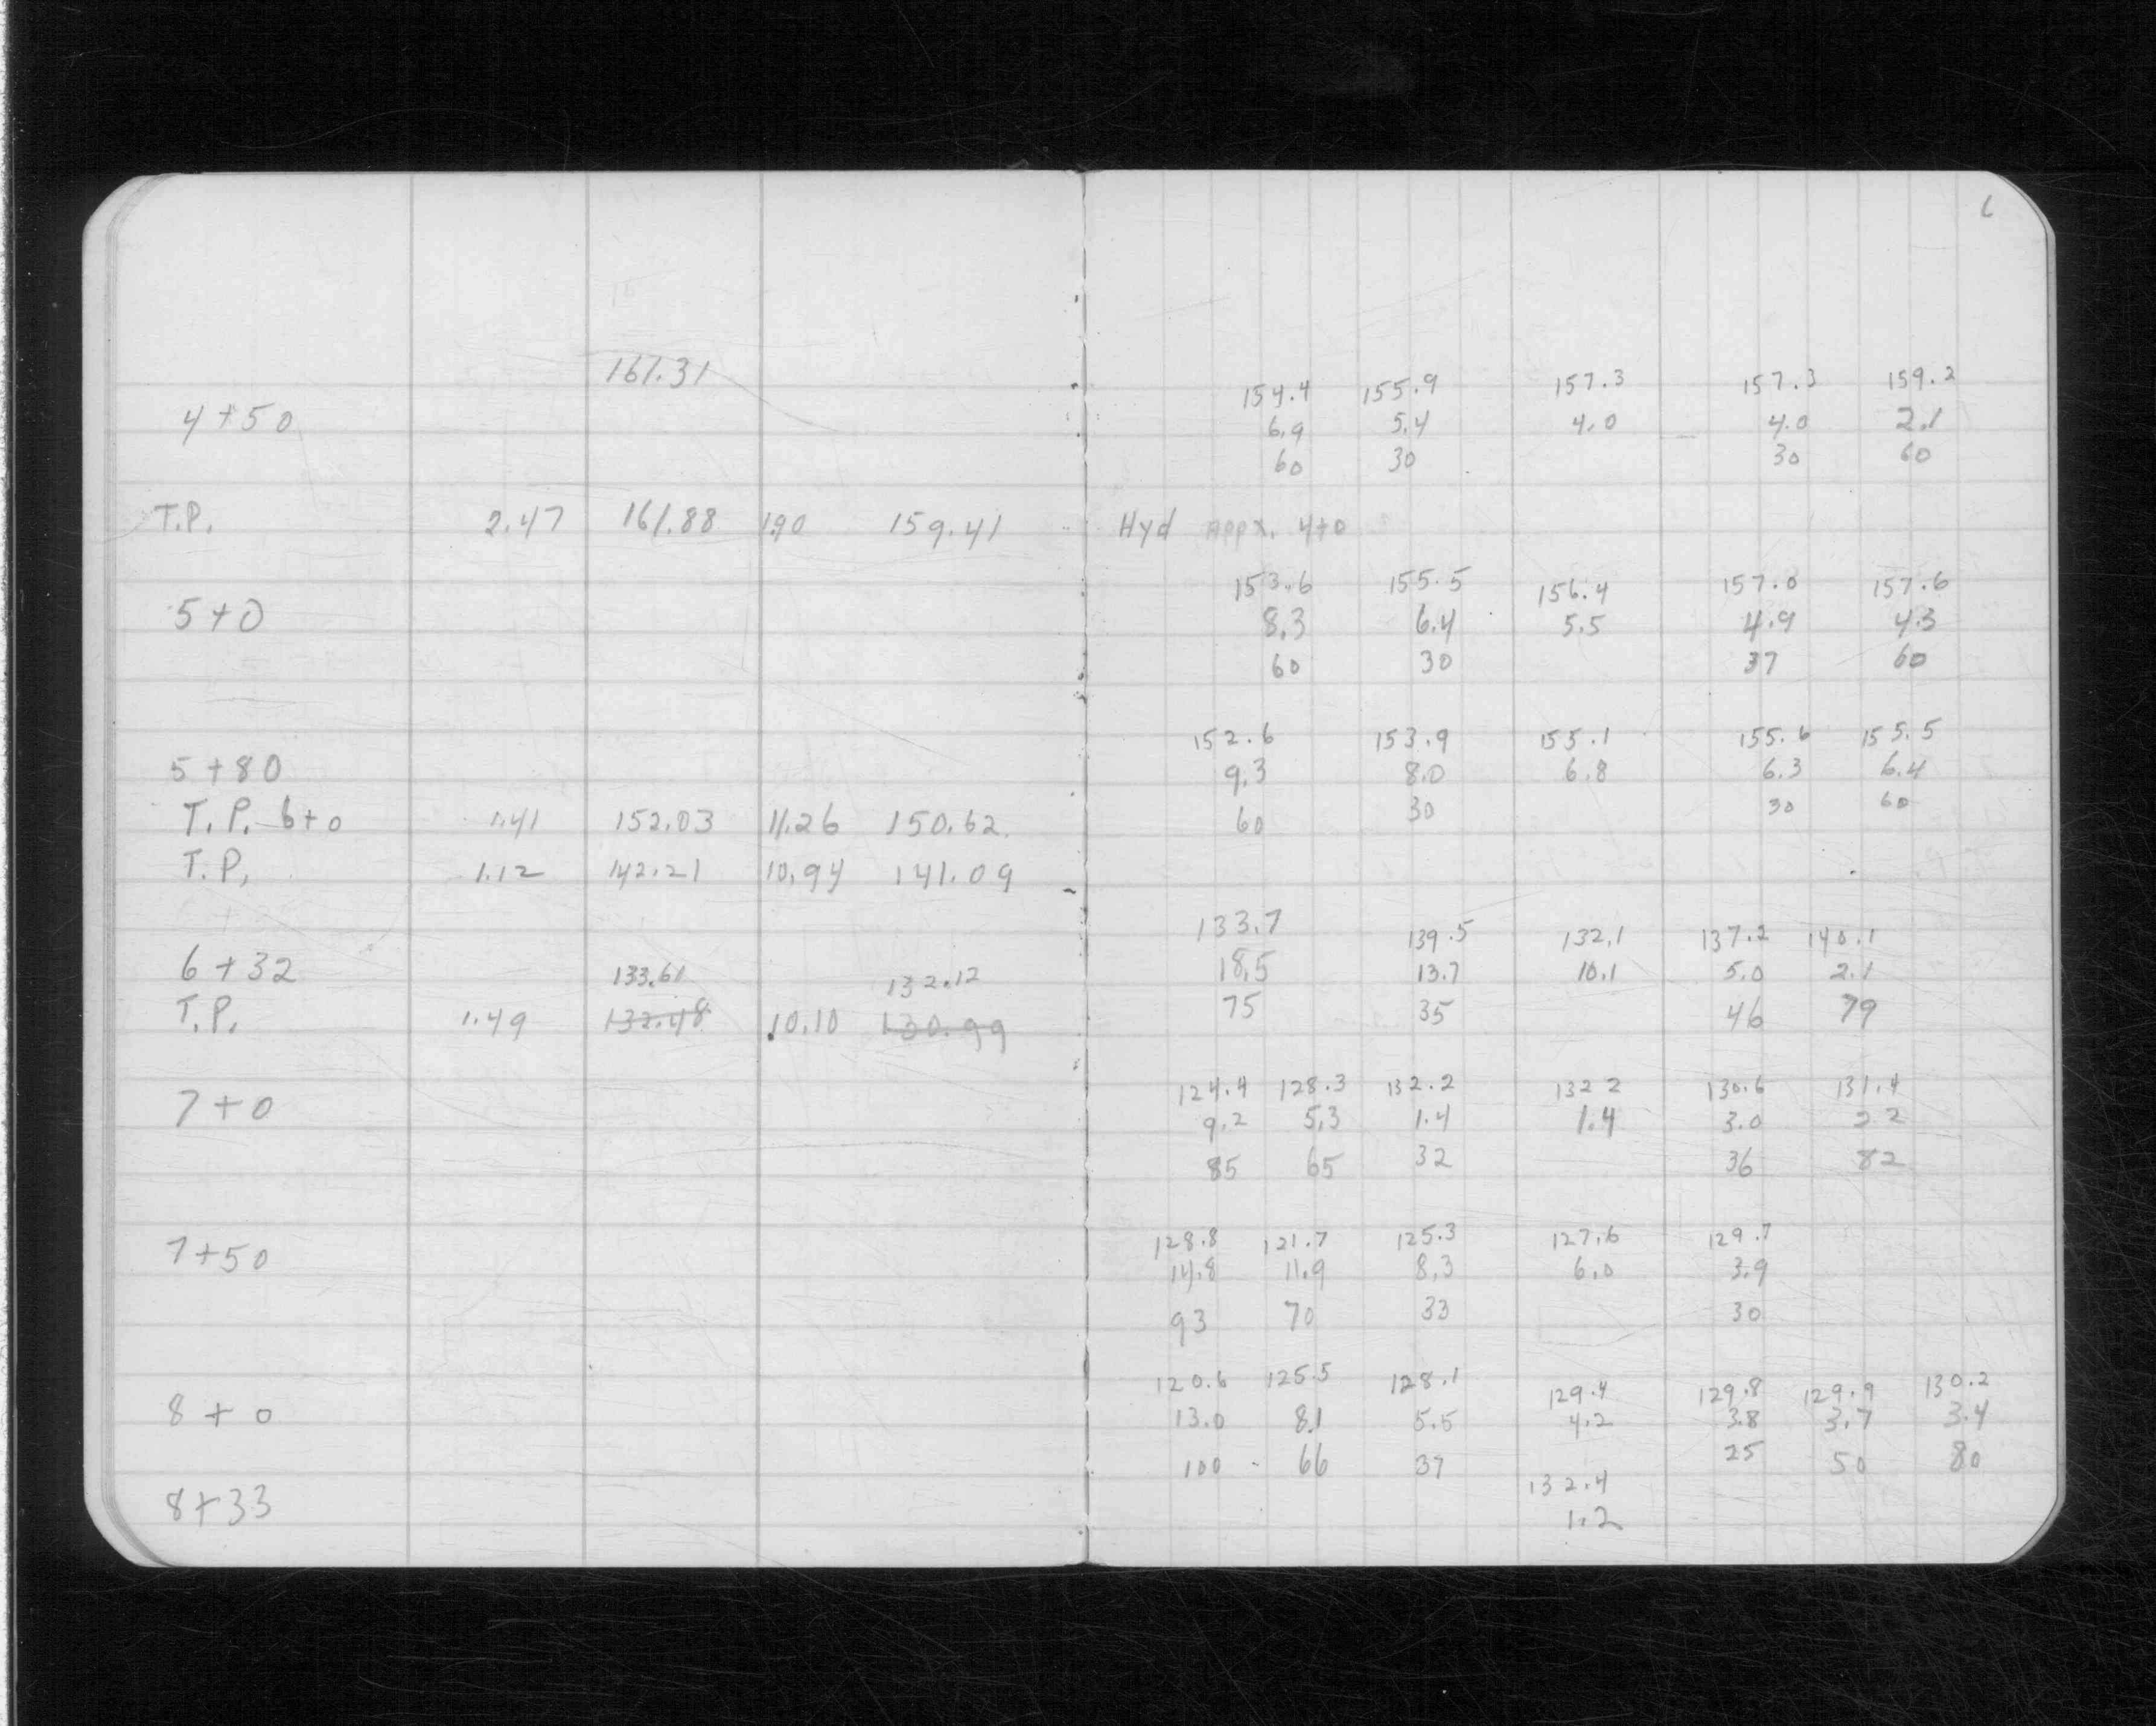 6
161.31
154.4 155.9 157.3 157.3 159.2
4+50 6.9 5.4 4.0 4.0 2.1
60 30 30 60
T.P. 2.47 161.88 1.90 159.41 Hyd Appx. 4+0
153.6 155.5 156.4 157.0 157.6
5+0 8.3 6.4 5.5 4.9 4.3
60 30 37 60
152.6 153.9 155.1 155.6 155.5
5+80 9.3 8.0 6.8 6.3 6.4
T.P. 6+0 1.41 152.03 11.26 150.62 60 30 30 60
T.P. 1.12 142.21 10.94 141.09
133.7 139.5 132.1 137.2 140.1
6+32 133.61 132.12 18.5 13.7 10.1 5.0 2.1
T.P. 1.49 132.48 10.10 130.99 75 35 46 79
124.4 128.3 132.2 132 2 130.6 131.4
7+0 9.2 5.3 1.4 1.4 3.0 2.2
85 65 32 36 82
128.8 121.7 125.3 127.6 129.7
7+50 14.8 11.9 8.3 6.0 3.9
93 70 33 30
120.6 125.5 128.1 129.4 129.8 129.9 130.2
8+0 13.0 8.1 5.5 4.2 3.8 3.7 3.4
100 66 37 25 50 80
132.4
8+33 1.2